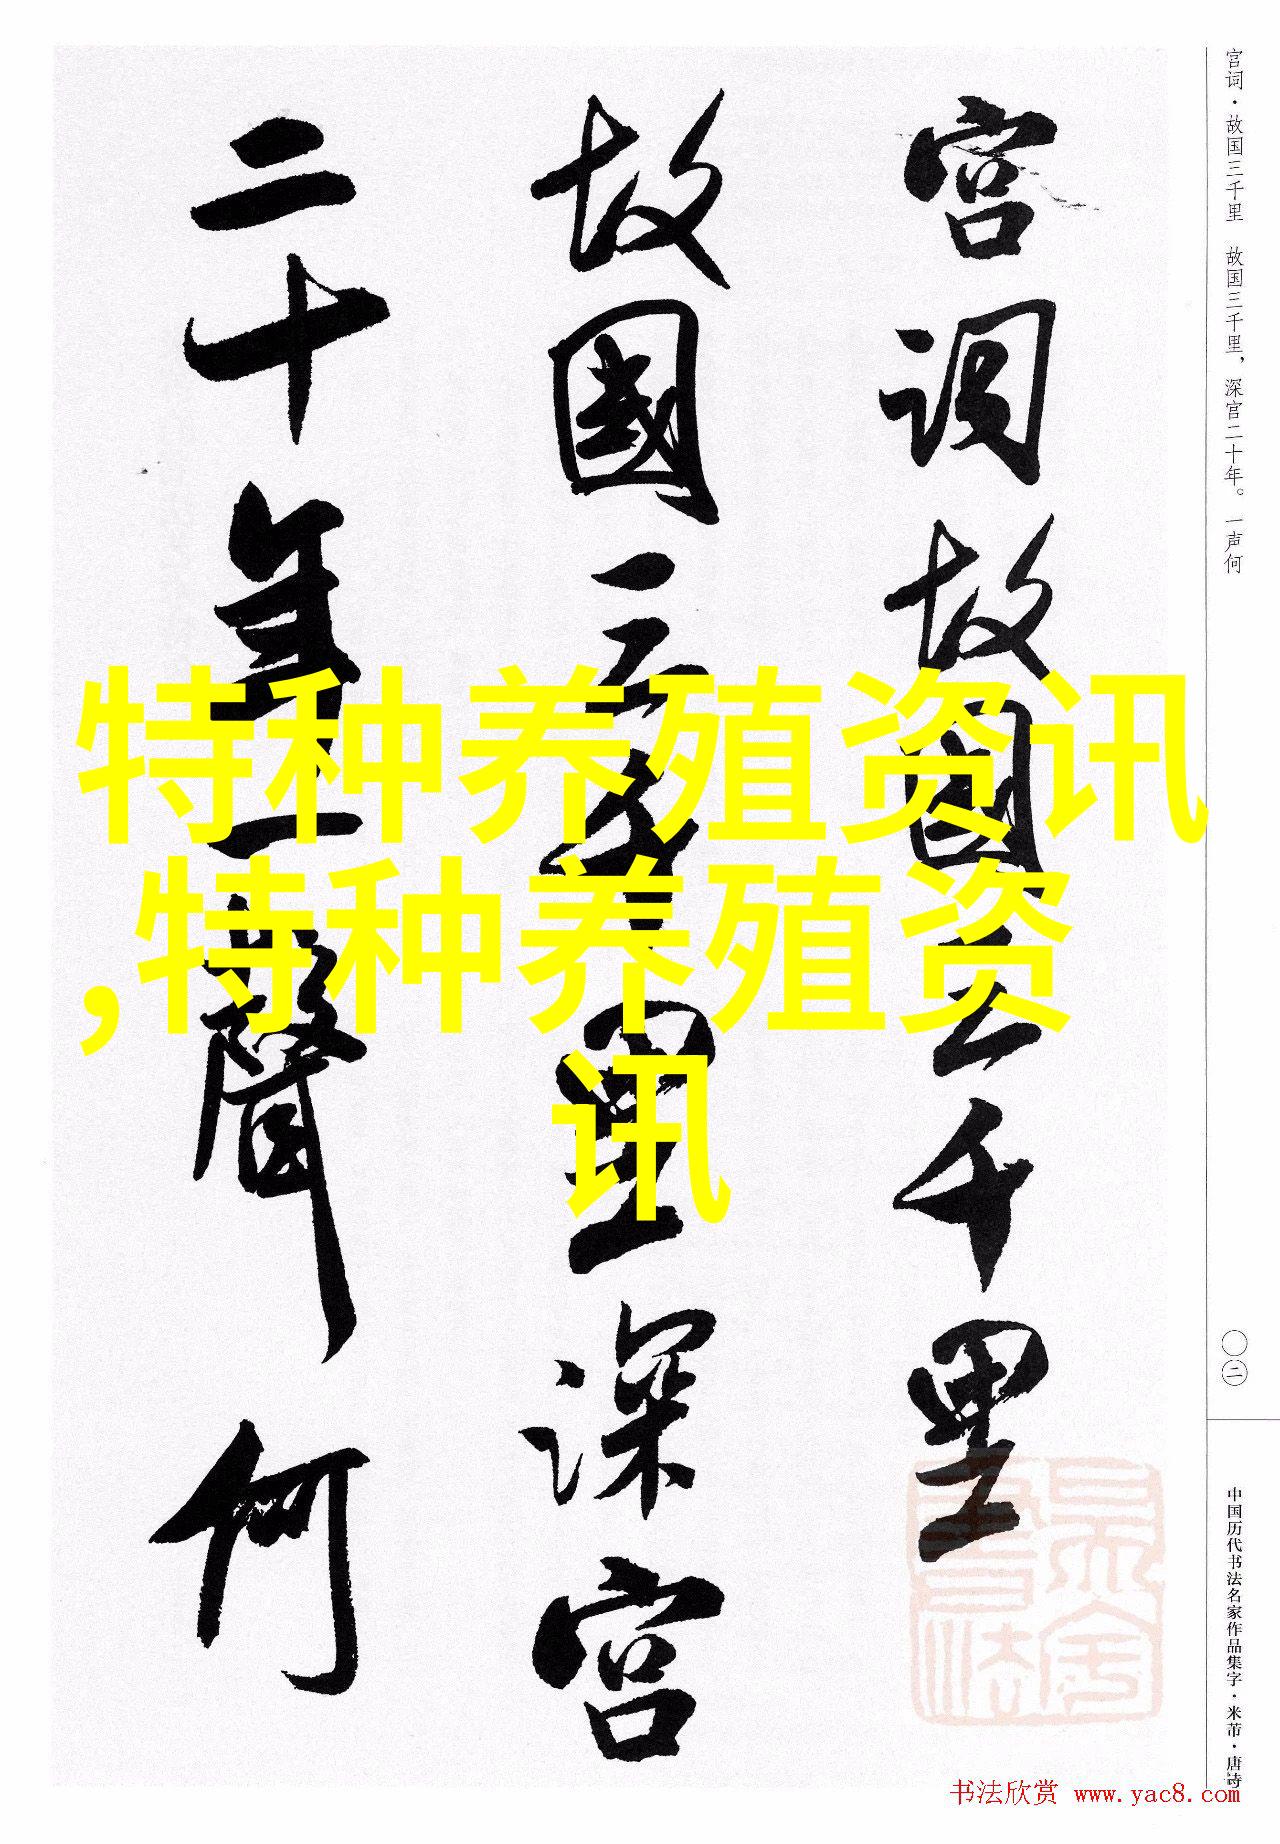 宫词·故国三千里　故国三千里，深宫二十年。一声何
宫词故国三千里
故國三千里深宫
二十年一聲何
特种养殖资讯
,特种养殖资
讯
〇二
中国历代书法名家作品集字·米芾·唐诗
书法欣赏 www.yac8.com